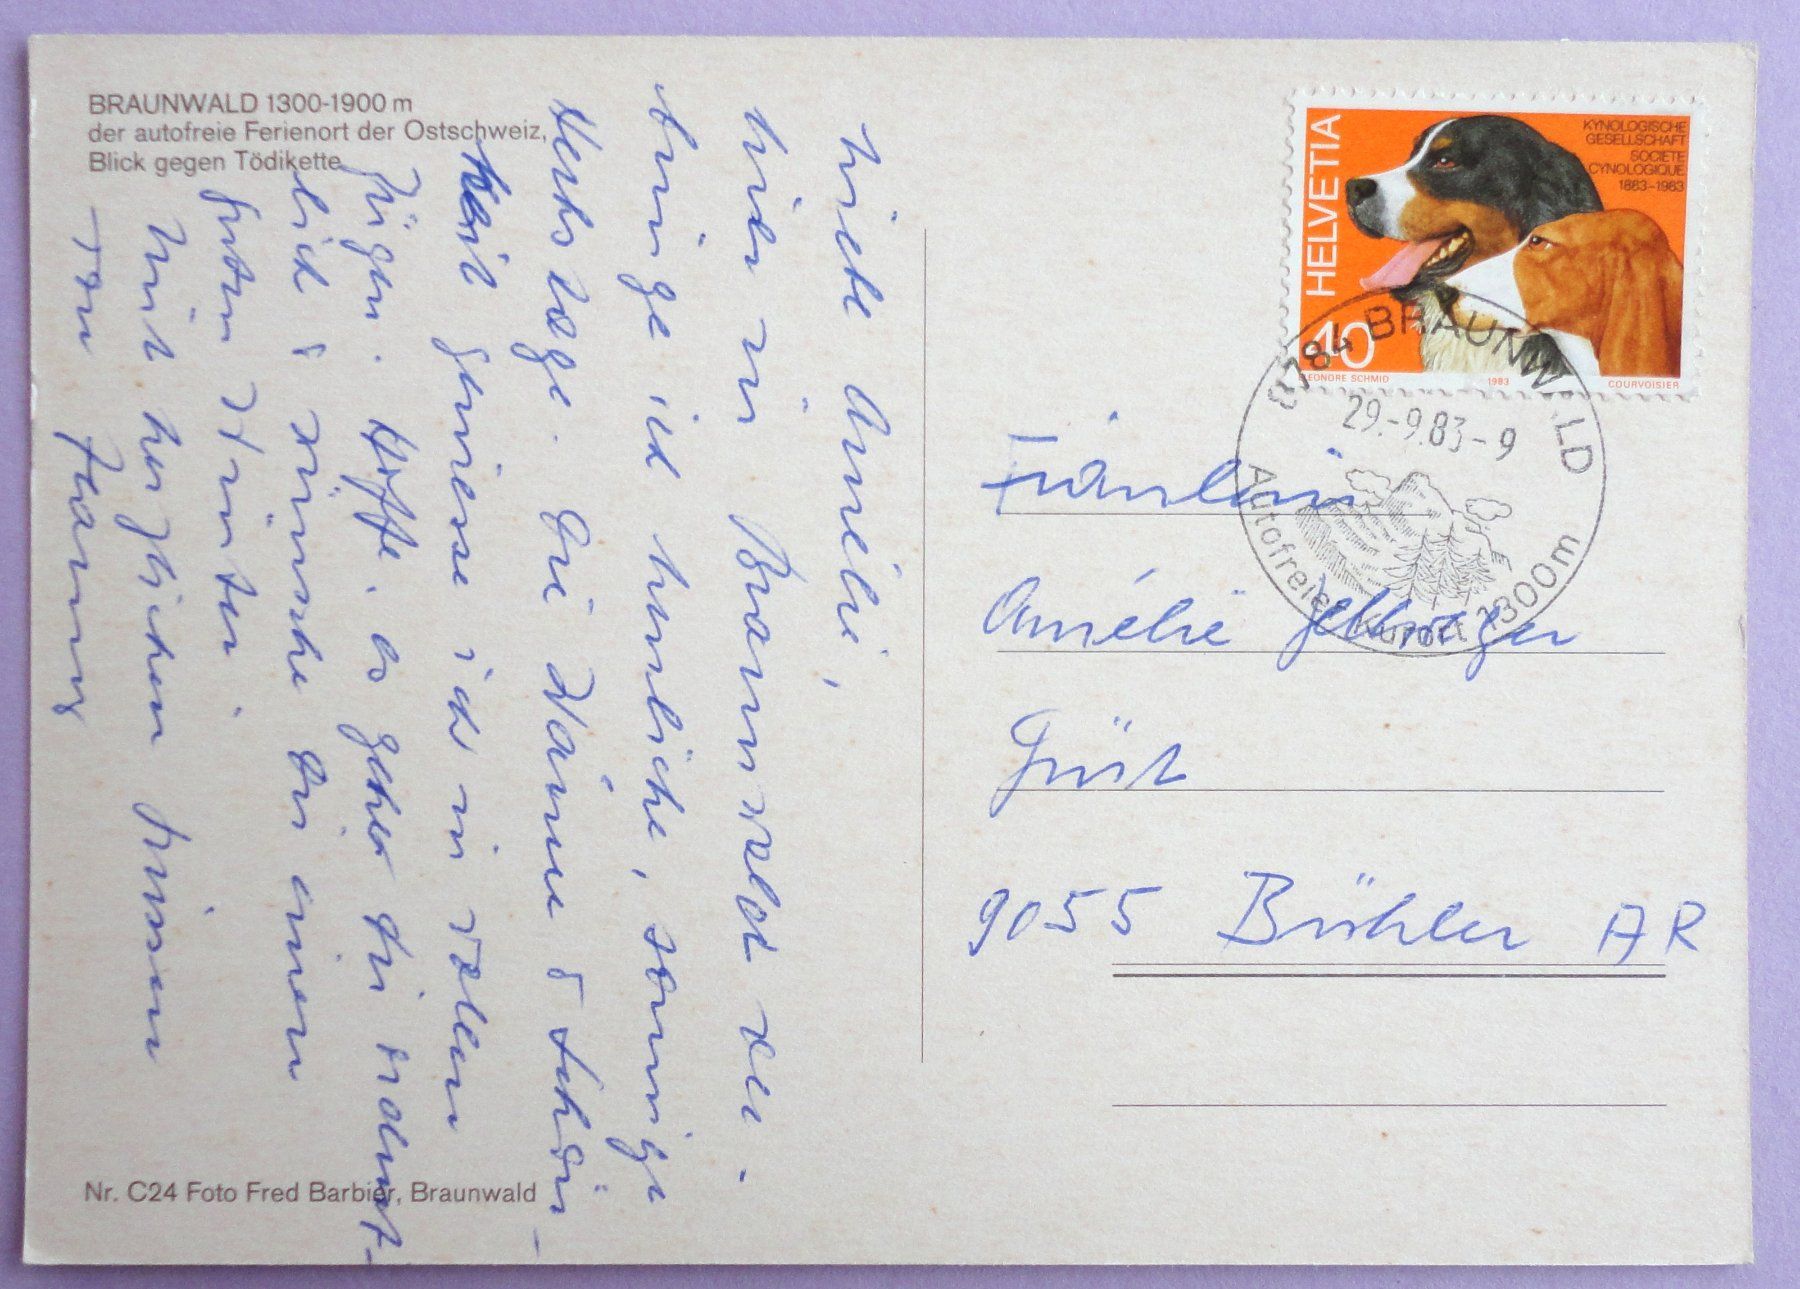 BRAUNWALD 1300-1900 m
der autofreie Ferienort der Ostschweiz,
Blick gegen Tödikette
Liebe Amélie,
hier in Braunwald ver-
bringe ich herrliche, sonnige
Herbsttage. Die Wärme & Schön-
heit geniesse ich in vollen
Zügen. Hoffe, es gehe dir
& wünsche dir einen
guten Winter.
Mit herzlichen Grüssen
Nr. C24 Foto Fred Barbier, Braunwald
HELVETIA
KYNOLOGISCHE
GESELLSCHAFT
SOCIETE
CYNOLOGIQUE
1883-1983
40
ELEONORE SCHMID 1983 COURVOISIER
8784 BRAUNWALD
29.-9.83-9
Autofreier Kurort 1300m
Fräulein
Amélie Zellweger
Grüt
9055 Bühler AR